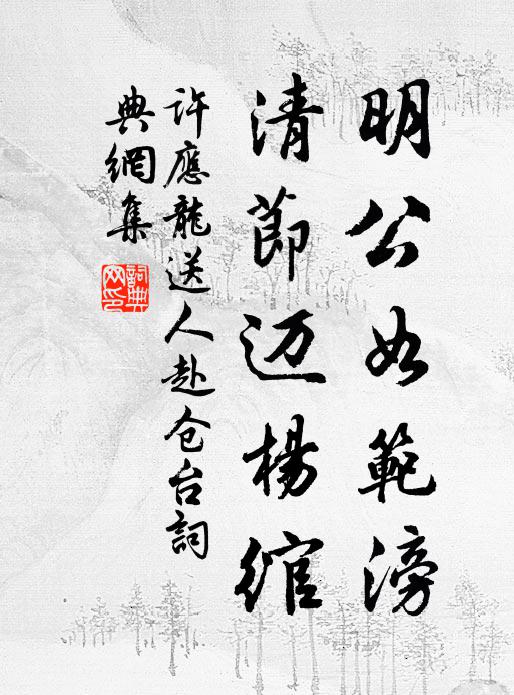 明公如範滂
清節迈楊綰
許應龍送人赴仓台詞
典網集
詞典网印